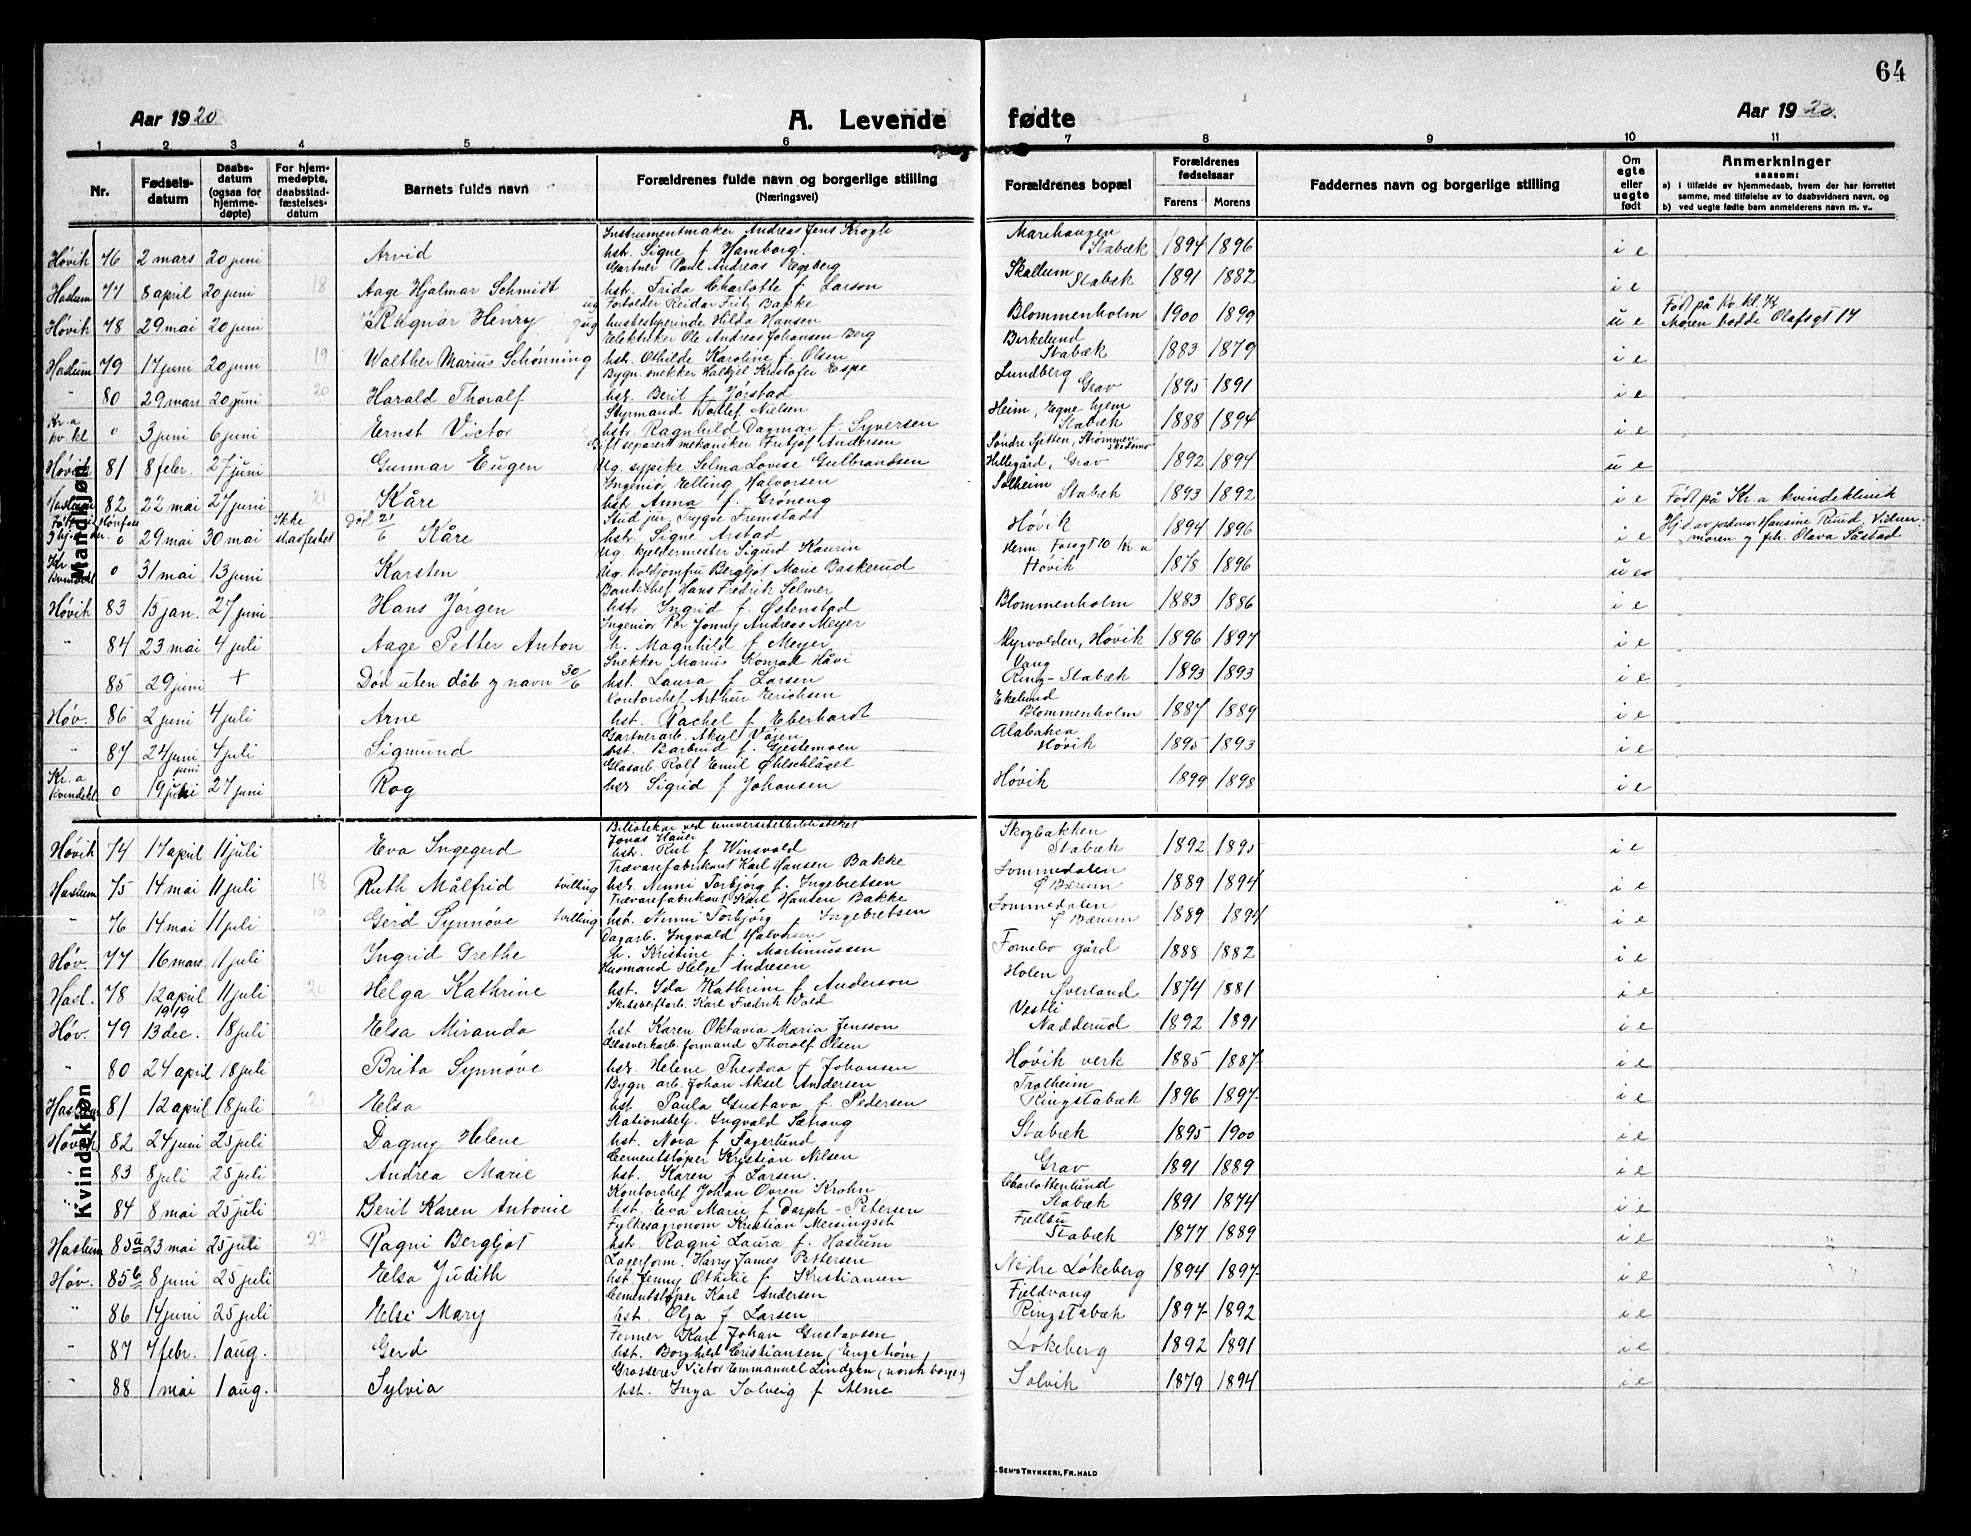 64
Aar 1920 A. Levende fødte Aar 1920.
1 2 3 4 5 6 7 8 9 10 11
Nr. Fødselsdatum Daabsdatum (ogsaa for hjemmedøpte) For hjemmedøpte, daabsstadfæstelsesdatum Barnets fulde navn Forældrenes fulde navn og borgerlige stilling (Næringsvei) Forældrenes bopæl Forældrenes fødselsaar Farens Morens Faddernes navn og borgerlige stilling Om egte eller uegte født Anmerkninger saasom: a) i tilfælde av hjemmedaab, hvem der har forrettet samme, med tilføielse av to daabsvidners navn, og b) ved uegte fødte barn anmelderens navn m. v.
Mandkjøn
Instrumentmaker Andreas Jens Krogli Marihaugen
Høvik 76 2 mars 20 juni Arvid hst. Signe f Hamborg. Stabæk 1894 1896 i e
Gartner Paul Andreas Egeberg Skallum
Haslum 77 8 april 20 juni 18 Aage Hjalmar Schmidt hst. Frida Charlotte f Larson Stabæk 1891 1882 i e
ug Forholder Reidar Frit. Bakke Født på Kv. kl. Kr
Høvik 78 29 mai 20 juni Ragnar Henry gug husbestyrerinde Hilda Hansen Blommenholm 1900 1899 u e Moren bodde Olafsgt 17
Elektriker Ole Andreas Johansen Berg Birkelund
Haslum 79 17 juni 20 juni 19 Walther Marius Schønning hst. Othilde Karoline f. Olsen Stabæk 1883 1879 i e
Bygn. snekker Halkjel Kristofer Espe Lundberg
" 80 29 mars 20 juni 20 Harald Thoralf hst. Berit f. Jørstad Grav 1895 1891 i e
Styrmand Nielsen Heim, Egne hjem
Kr.a kv. kl 0 3 juni 6 juni Ernst Victor hstr. Ragnhild Dagmar f. Syversen Stabæk 1888 1894 i e
Gift separert mekaniker Fritjof Andersen Søndre Sjitten, Strømmen Skedsmo
Høvik 81 8 feber. 27 juni Gunnar Eugen Ug. sypike Selma Lovise Gulbrandsen Hillegård, Grav 1892 1894 u e
Ingeniør Elling Halvorsen Solheim
Haslum 82 22 mai 27 juni 21 Kåre hst. Anna f. Grøneng Stabæk 1893 1892 i e Født på Kr.a kvindeklinik
Stud jur. Trygve Fremstadt
0 29 mai 30 mai Ikke stadfestet Død 21/6 Kåre hstr. Signe Arstad Høvik 1894 1896 i e Hj.d. av jordmor Hansine Ruud. Vidner moren og frk. Olava Såstad
Ug. kjeldermester Sigurd Kaurin Herm. Fossgt 10 Kr a
Kr Kvindekl 0 31 mai 13 juni Karsten Ug. holdjomfru Bergljot Marie Baskerud Høvik 1878 1896 u e
Bankchef Hans Fredrik Selmer
Høvik 83 15 jan. 27 juni Hans Jørgen hstr. Ingrid f. Østenstad Blommenholm 1883 1886 i e
Ingeniør Per Jonny Andreas Meyer
" 84 23 mai 4 juli Aage Petter Anton h. Magnhild f Meyer Myrvolden, Høvik 1896 1897 i e
Snekker Marius Konrad Håvi Vang
85 29 juni + Død uten dåb og navn 30/6 hst. Laura f Larsen Ring-Stabæk 1893 1893 i e
Kontorchef Arthur Erichsen Ekelund
Høv. 86 2 juni 4 juli Arne hst. Rachel f Eberhardt Blommenholm 1887 1889 i e
Gartnerarb. Aksel Vøien Alabahca
" 87 24 juni 4 juli Sigmund hst. Barbrud f. Gjestemoen Høvik 1895 1893 i e
Glasarb. Rolf Emil Øhlschlägel
Kr.a Kvindekl 0 19 juni 27 juni Rog hst Sigrid f Johansen Høvik 1899 1898 i e
Kvindekjøn
Bibliotekar ved universitetsbiblioteket Jonas Hauer Skogbakken
Høvik 74 17 april 11 juli Eva Ingegerd hst. Rut f Winsvold Stabæk 1892 1895 i e
Trævarefabrikant Karl Hansen Bakke Lommedalen
Haslum 75 14 mai 11 juli 18 Ruth Målfrid tvilling hst. Ninni Torbjørg f. Ingebretsen Ø Bærum 1889 1894 i e
Trævarefabrikant Karl Hansen Bakke Lommedalen
" 76 14 mai 11 juli 19 Gerd Synnøve tvilling hst. Ninni Torbjørg Ingebretsen Ø Bærum 1889 1894 i e
Dagarb. Ingvald Halvorsen
Høv. 77 16 mars 11 juli Ingrid Grethe h. Kristine f. Martinussen Fornebo gård 1888 1882 i e
Husmand Helge Andresen Holen
Hasl. 78 12 april 11 juli 20 Helga Kathrine hst. Ida Kathrin f Anderson Øverland 1874 1881 i e
1919 Karl Fredrik Vold Vestli
Høv. 79 13 dec. 18 juli Elsa Miranda hst. Karen Oktavia Maria Jensson Nadderud 1892 1891 i e
Glasverkarb. formand Thoralf Olsen
" 80 24 april 18 juli Brita Synnøve hst. Helene Theodora f Johansen Høvik verk 1885 1887 i e
Bygn. arb. Johan Aksel Andersen Tralheim
Haslum 81 12 april 18 juli 21 Elsa hst. Paula Gustava f. Pedersen Ringstabæk 1896 1897 i e
Stationsbetj. Ingvald Sæhaug
Høvik 82 24 juni 25 juli Dagny Helene hst. Nora f Fagerlund Stabæk 1895 1900 i e
Cementstøper Kristian Nilsen
" 83 8 juli 25 juli Andrea Marie hst. Karen f Larsen Grav 1891 1889 i e
Kontorchef Johan Øvren Krohn Charlottenlund
" 84 8 mai 25 juli Berit Karen Antonie hst. Eva Marie f Dorph-Petersen Stabæk 1891 1874 i e
Fylkesagronom Kristian Meisingset Fjellbu
Haslum 85a 23 mai 25 juli 22 Ragni Bergljot hstr. Ragni Laura f. Haslum Stabæk 1877 1889 i e
Lagerform. Harry James Pettersen
Høv. 85b 8 juni 25 juli Elsa Judith hst Jenny Othilie f. Kristiansen Nedre Løkeberg 1894 1897 i e
Cementstøper Karl Andersen Fjeldvang
" 86 14 juni 25 juli Elsi Mary hst. Olga f Larsen Ringstabæk 1897 1892 i e
Former Karl Johan Gustavsen
" 87 4 febr. 1 aug. Gerd hst. Borghild Cristiansen (Engetrøm) Løkeberg 1892 1891 i e
Grosserer Victor Emmanuel Lindgren (norsk borger)
" 88 1 mai 1 aug. Sylvia hst. Inga Solveig f Alme Solvik 1879 1894 i e
SEM'S TRYKKERI, FR. HALD